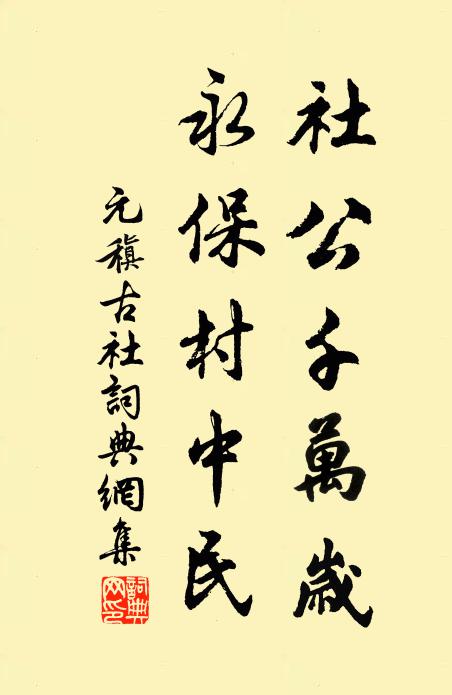 社公千萬歲
永保村中民
元稹古社詞典網集
詞典網印